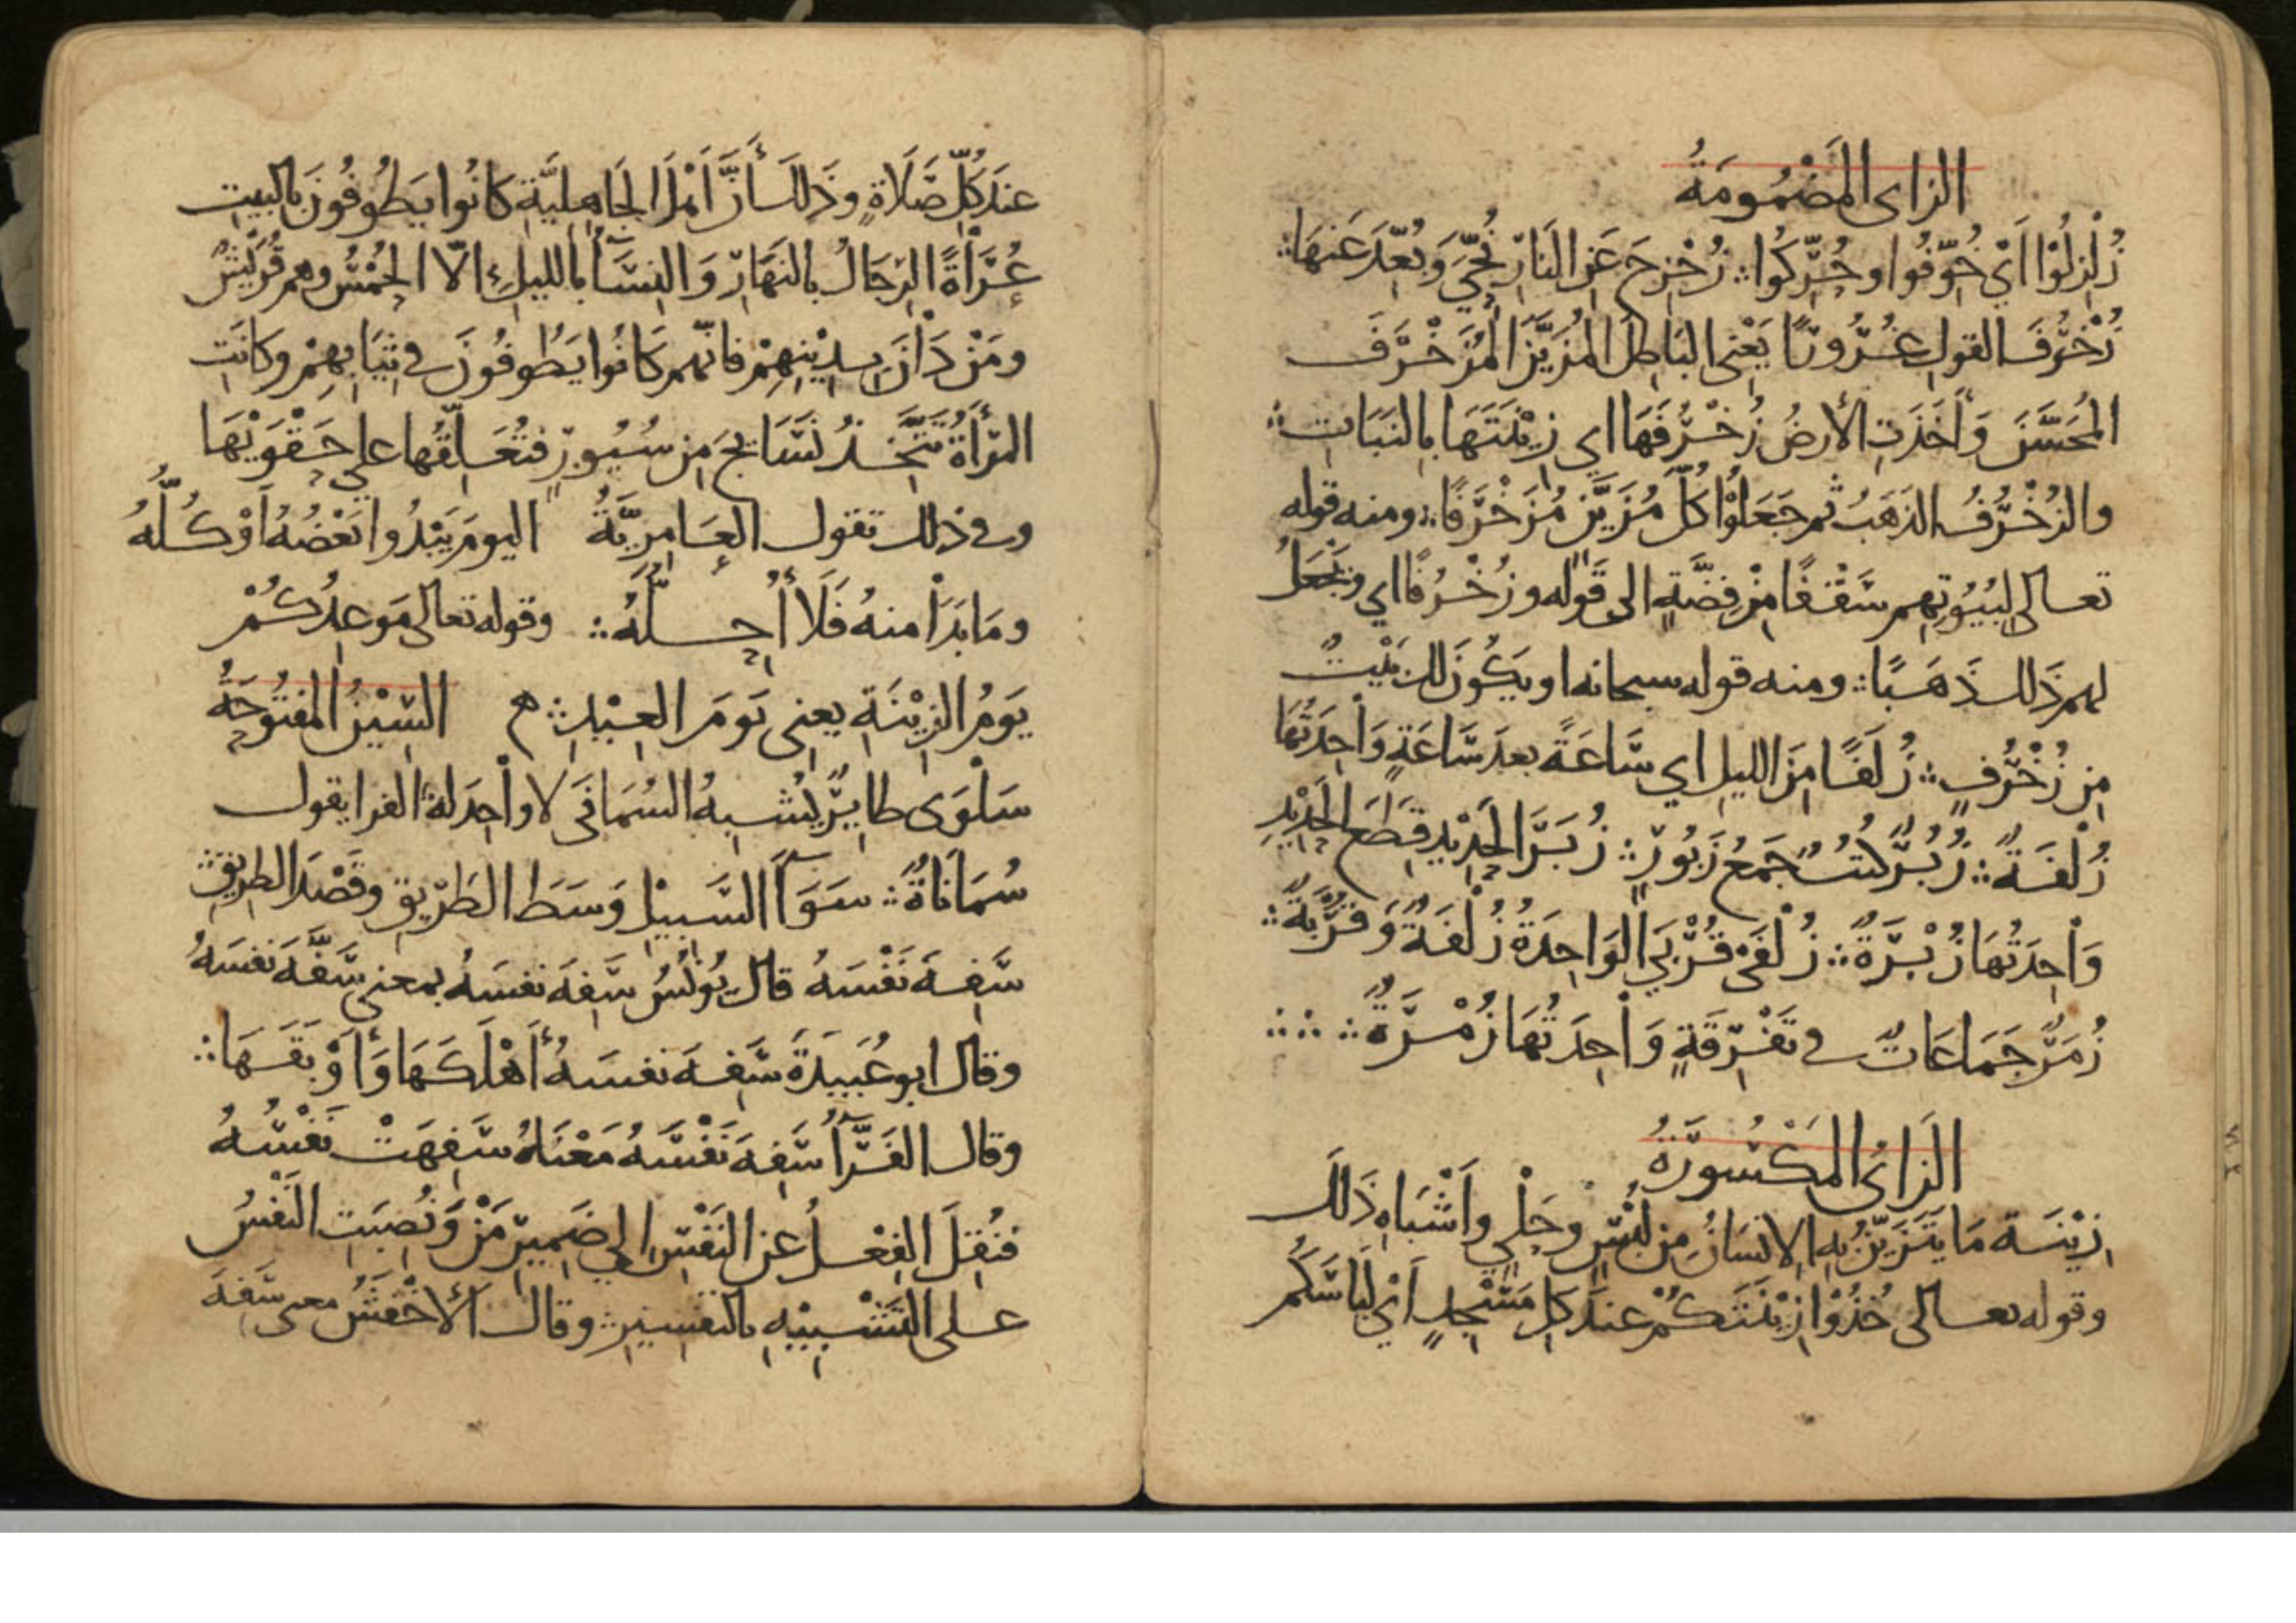 الزاي المَضْمُومَةُ
زُلْزِلُوْا اَيْ خُوِّفُوا وحُرِّكُوا ؞ زُحْزِحَ عَنِ النَارِ نُحِّيَ وَبُعِّدَ عَنهَا ؞
زُخْرُفَ القولِ غُرُورًا يَعْنِي البَاطِلَ المُزَيَّنَ المُزَخْرَفَ
المُحَسَّنَ وَأَخَذَتِ الأرضُ زُخْرُفَهَا اي زِيْنَتَهَا بِالنَبَاتِ ؞
والزُخْرُفُ الذَهَبُ ثم جَعَلُوْا كلَّ مُزَيَّنٍ مُزَخْرَفًا ؞ ومنه قوله
تعالى لِبُيُوتِهِم سَقْفًا مِنْ فِضَّةٍ الى قَوْله وزُخْرُفًا اي ونَجْعَلُ
لهم ذَلك ذَهَبًا ؞ ومنه قوله سبحانه او يَكُونَ لك بَيْتٌ
مِن زُخْرُفٍ ؞ زُلَفًا مِنَ الليلِ اي سَاعَةً بعدَ سَاعَةٍ وَاحِدَتُهَا
زُلْفَةٌ ؞ زُبُرٌ كُتُبٌ جَمعُ زَبُورٍ ؞ زُبَرَ الحَدِيْدِ قِطَعَ الحَدِيْدِ
وَاحِدَتُهَا زُبْرَةٌ ؞ زُلْفَىٰ قُرْبَي الوَاحِدَةُ زُلْفَةٌ وَقُرْبَةٌ ؞
زُمَرٌ جَمَاعَاتٌ في تَفْرِقَةٍ وَاحِدَتُهَا زُمْرَةٌ ؞ ؞ ؞
الزَايُ المَكْسُورَةُ
زِيْنَة مَا يَتَزَيَّنُ بِهِ الانسَانُ مِن لُبْسٍ وحَلْيٍ وأَشْبَاهِ ذَلكَ
وقوله تعالى خُذُوْا زِيْنَتَكُمْ عندَ كلِّ مَسْجِدٍ اَيْ لِبَاسَكُم
عندَ كُلِّ صَلَاةٍ وذَلِكَ أَنَّ اَهْلَ الجَاهِليَّةِ كَانُوا يَطُوفُونَ بالبيتِ
عُرَاةً الرِّجَالُ بالنَهَارِ وَالنِسَآءُ بالليلِ الّا الحُمْسُ وهم قُرَيْشٌ
ومَنْ دَانَ بِدِيْنِهِمْ فانّهم كَانُوا يَطُوفُونَ في ثِيَابِهِمْ وكانَتِ
المَرْأةُ تَتَّخِذُ نَسَائِجَ مِن سُيُورٍ فتُعَلِّقُها علي حَقْوَيْهَا
وفي ذلك تقول العَامِرِيَّةُ اليومَ يَبْدُوا بَعْضُهُ اَوْ كُلُّهُ
ومَا بَدَا منهُ فَلَا أُحِلُّهُ ؞ وقوله تعالى مَوعِدُكُمْ
يَوْمُ الزِيْنَةِ يعني يَومَ العِيْدِ ؞ ه السِّيْنُ المَفتُوحَةُ
سَلْوَى طايِرٌ يُشبِهُ السُمَانَى لا واحِدَ لهُ الفرا يقول
سُمَانَاةٌ ؞ سَوَآءَ السَّبِيْلِ وَسَطَ الطَرِيقِ وقَصْدَ الطرِيقِ ؞
سَفِهَ نَفْسَهُ قال يُونُسُ سَفِهَ نفسَهُ بمعني سَفَّهَ نفسَهُ
وقال ابو عُبَيدَةَ سَفِهَ نفسَهُ أَهْلَكَهَا وَأَوْبَقَهَا ؞
وقال الفَرَّآءُ سَفِهَ نَفْسَهُ مَعْنَاهُ سَفِهَتْ نَفْسُهُ
فنُقِلَ الفِعْلُ عن النَفْسِ الي ضَمِيرِ مَنْ وَنُصِبَتِ النَفْسُ
على التَشْبِيْهِ بالتفسيرِ ؞ وقال الأخْفَشُ معنى سَفِهَ